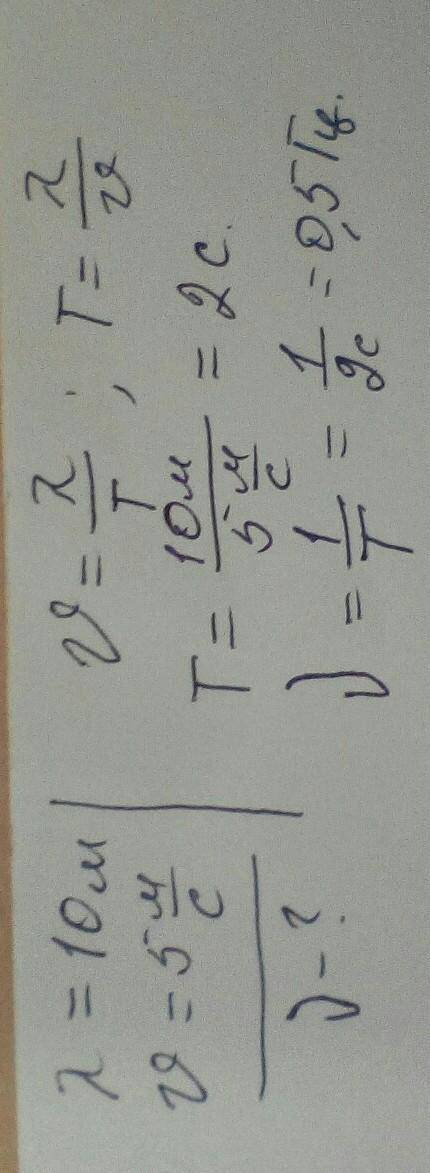 λ = 10 м
υ = 5 м/с
ν - ?
υ = λ/T ; T = λ/υ
T = 10м / 5 м/с = 2 с.
ν = 1/T = 1/2с = 0,5 Гц.